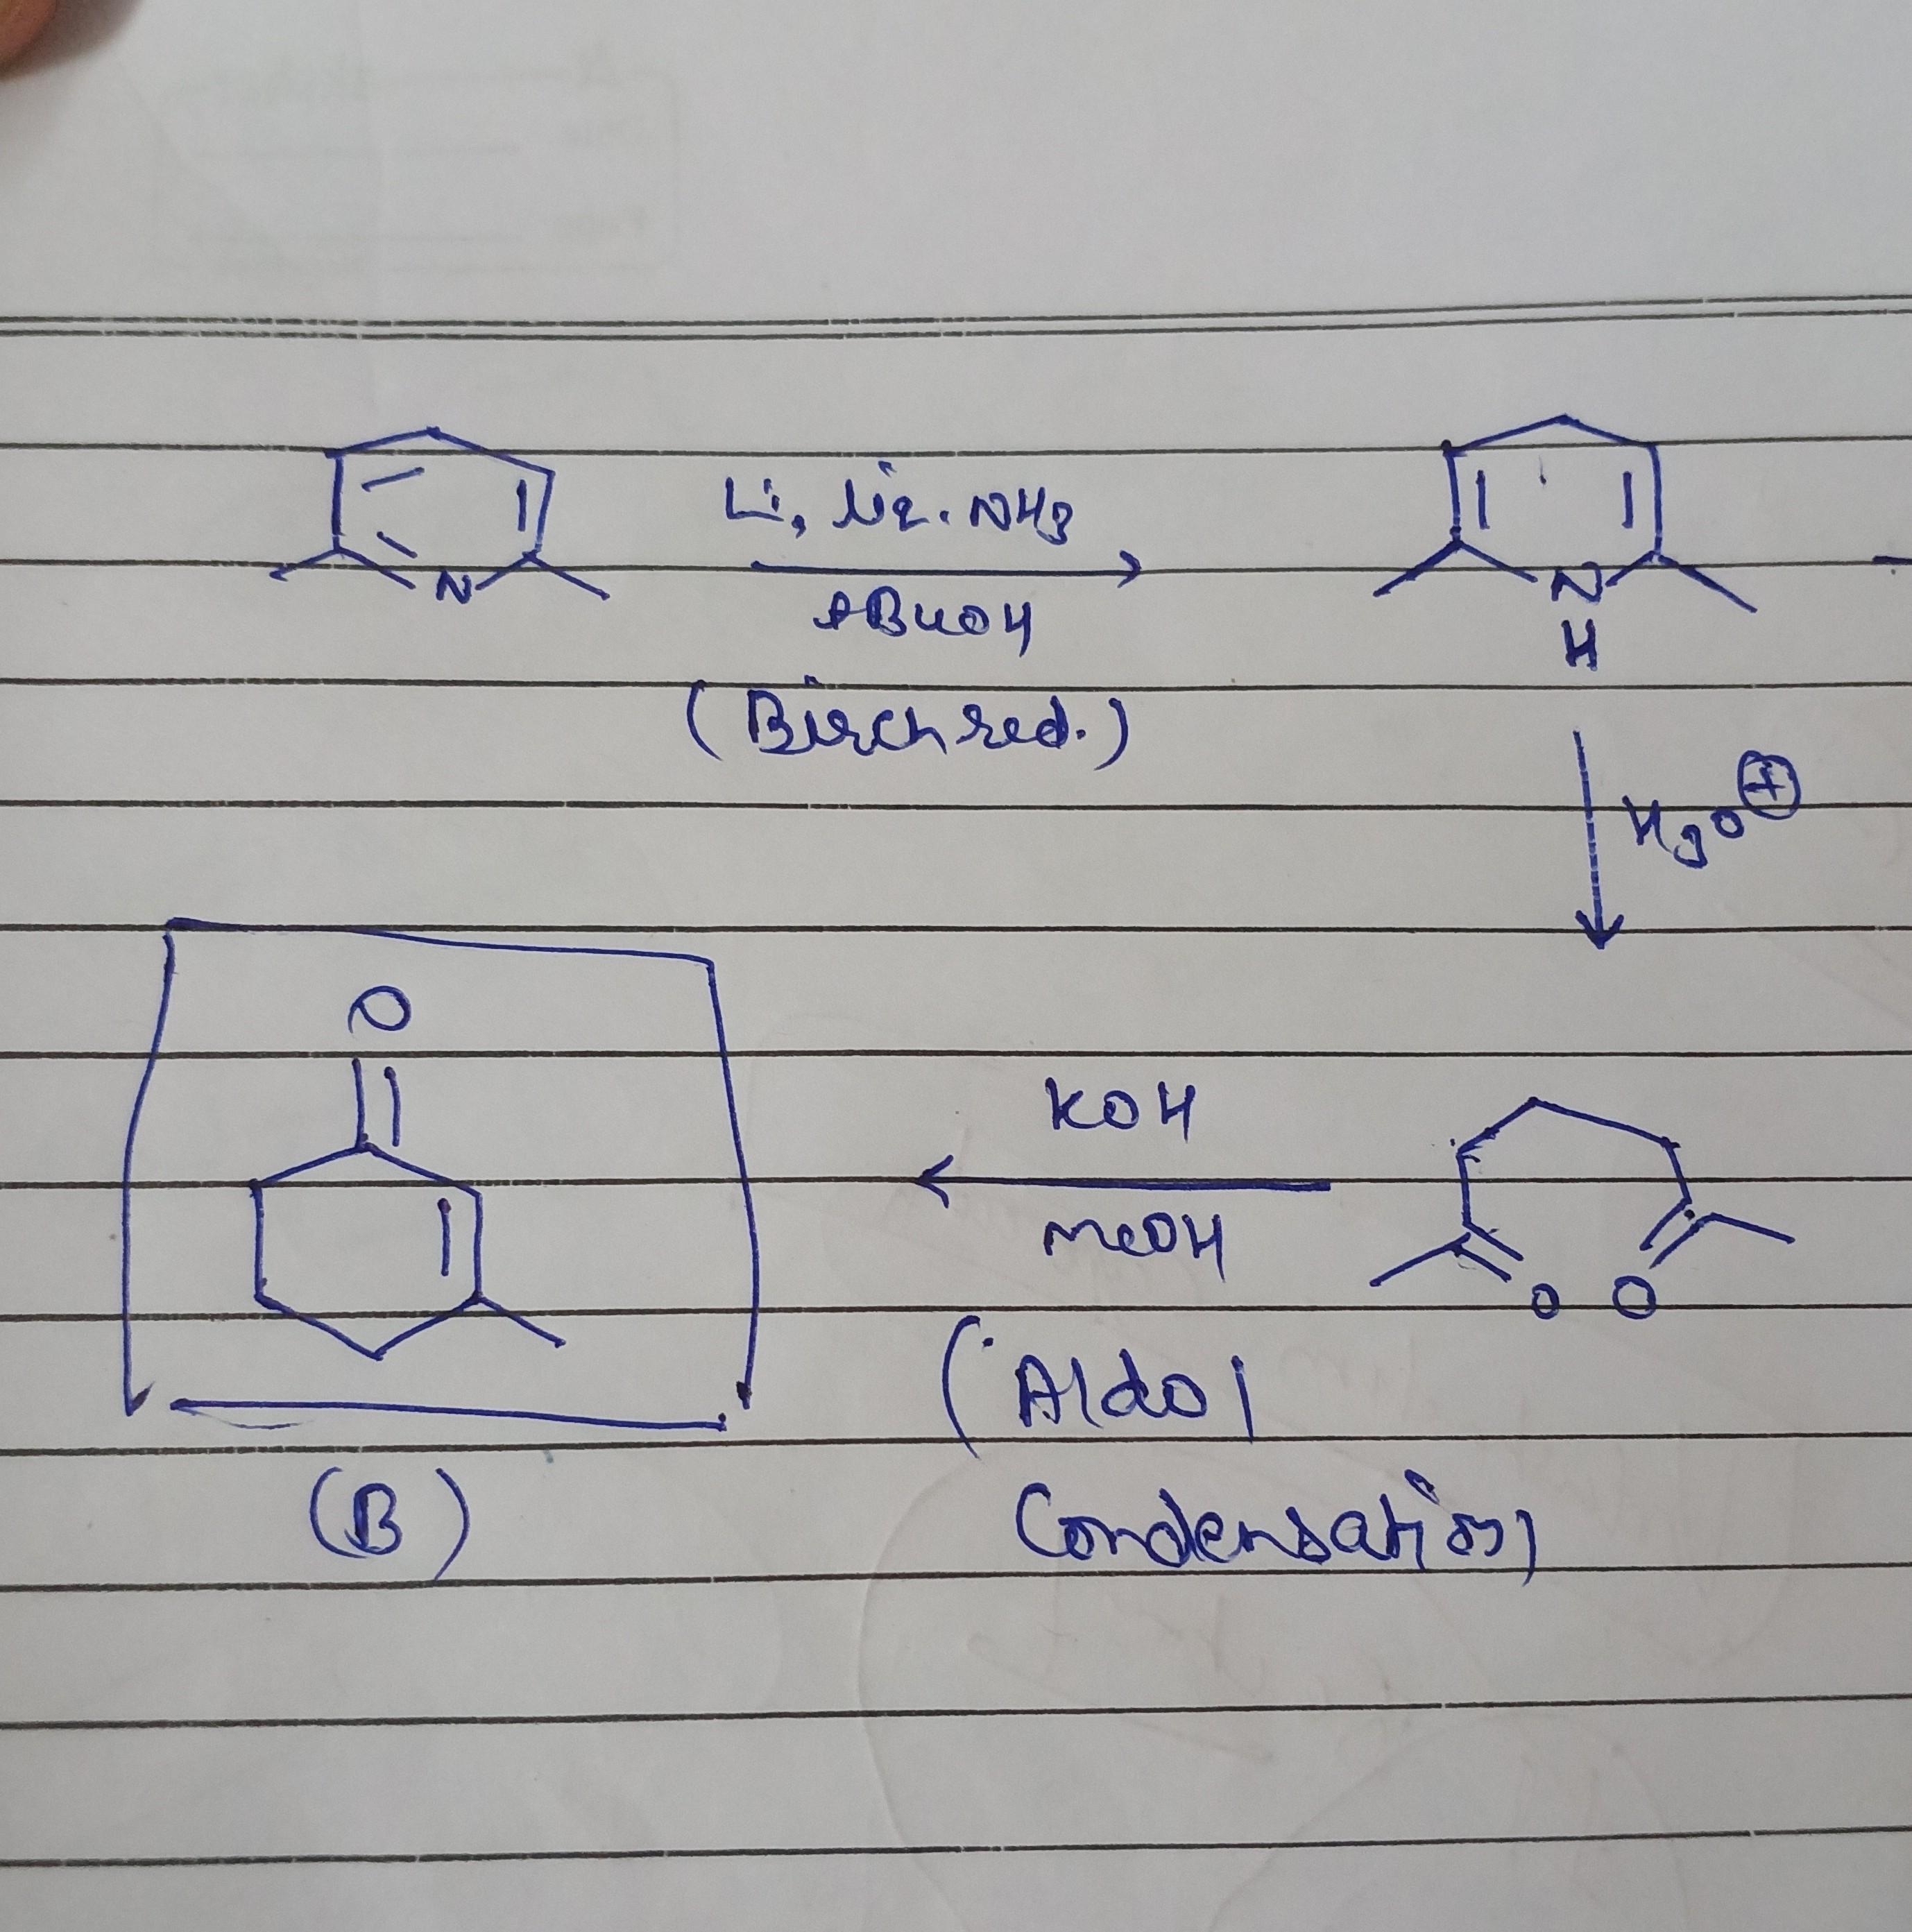 Li, liq. NH3
tBuOH
(Birch red.)
N
N
H
H3O⊕
O
KOH
MeOH
O O
(Aldol
Condensation)
(B)